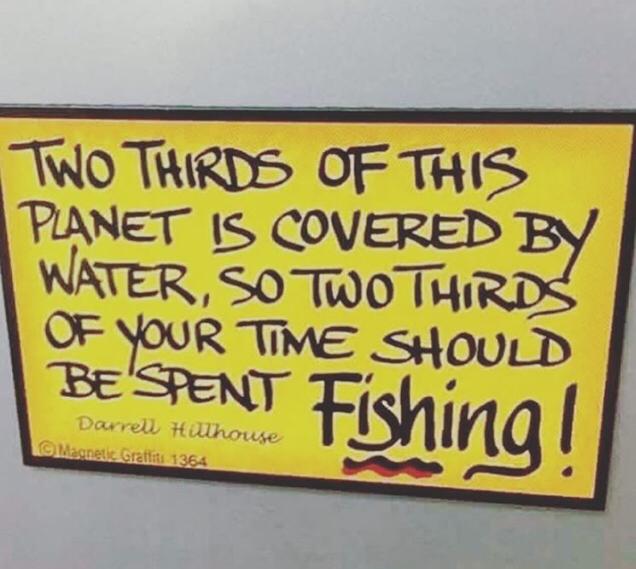 TWO THIRDS OF THIS
PLANET IS COVERED BY
WATER, SO TWO THIRDS
OF YOUR TIME SHOULD
BE SPENT Fishing!
Darrell Hillhouse
© Magnetic Graffiti 1364